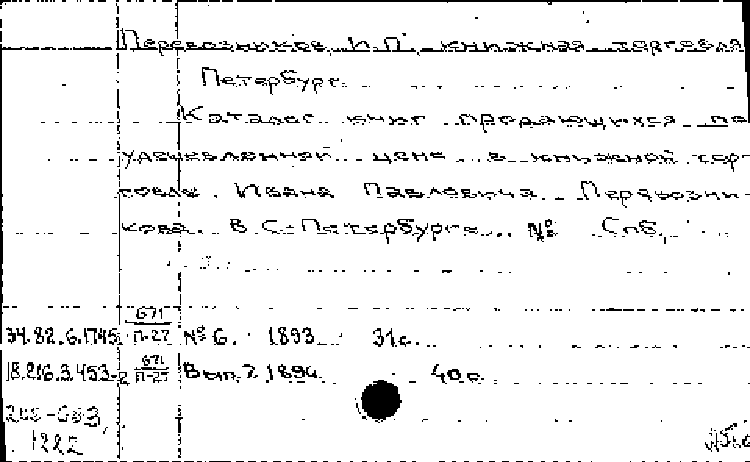 Перевозников, И.П. книжная торговля
Петербург.
Каталог книг продающихся по
удешевленной цене в книжной тор-
говле Ивана Павловича Перевозни-
кова. В С.-Петербурге. № Спб,
34.82.6.1745 671/П-27 № 6. 1893 31с.
18.206.3.453-2 671/П-27 Вып.2 1894 40с.
1222